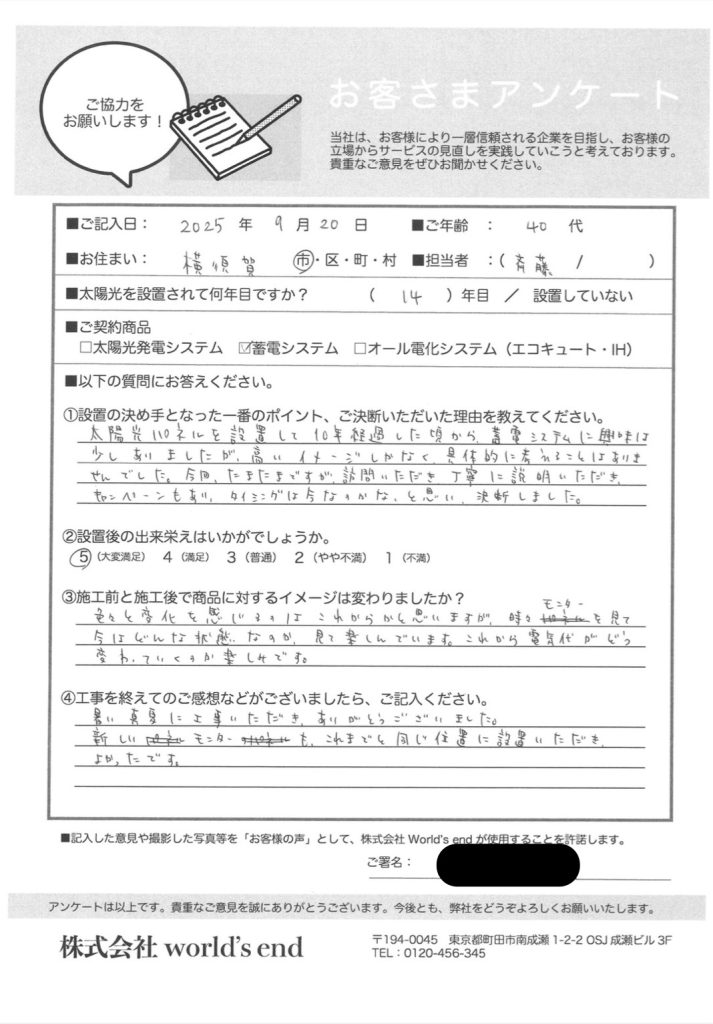 ご協力を
お願いします！
お客さまアンケート
当社は、お客様により一層信頼される企業を目指し、お客様の
立場からサービスの見直しを実践していこうと考えております。
貴重なご意見をぜひお聞かせください。
■ご記入日： 2025 年 9 月 20 日 ■ご年齢 ： 40 代
■お住まい： 横須賀 市・区・町・村 ■担当者 ：( 斉藤 / )
■太陽光を設置されて何年目ですか？ ( 14 ) 年目 ／ 設置していない
■ご契約商品
□太陽光発電システム ☑蓄電システム □オール電化システム（エコキュート・IH）
■以下の質問にお答えください。
①設置の決め手となった一番のポイント、ご決断いただいた理由を教えてください。
太陽光パネルを設置して10年経過した頃から、蓄電システムに興味は
少しありましたが、高いイメージしかなく、具体的に考えることはありま
せんでした。今回、たまたまですが、訪問いただき、丁寧に説明いただき、
キャンペーンもあり、タイミングは今なのかな、と思い、決断しました。
②設置後の出来栄えはいかがでしょうか。
5（大変満足） 4（満足） 3（普通） 2（やや不満） 1（不満）
③施工前と施工後で商品に対するイメージは変わりましたか？
モニター
色々と変化を感じるのはこれからかと思いますが、時々パネルを見て
今はどんな状態なのか、見て楽しんでいます。これから電気代がどう
変わっていくのか楽しみです。
④工事を終えてのご感想などがございましたら、ご記入ください。
暑い真夏に工事いただき、ありがとうございました。
新しいパネル モニター パネルも、これまでと同じ位置に設置いただき、
よかったです。
■記入した意見や撮影した写真等を「お客様の声」として、株式会社 World's end が使用することを許諾します。
ご署名：
アンケートは以上です。貴重なご意見を誠にありがとうございます。今後とも、弊社をどうぞよろしくお願いいたします。
株式会社 world's end
〒194-0045 東京都町田市南成瀬 1-2-2 OSJ 成瀬ビル 3F
TEL：0120-456-345